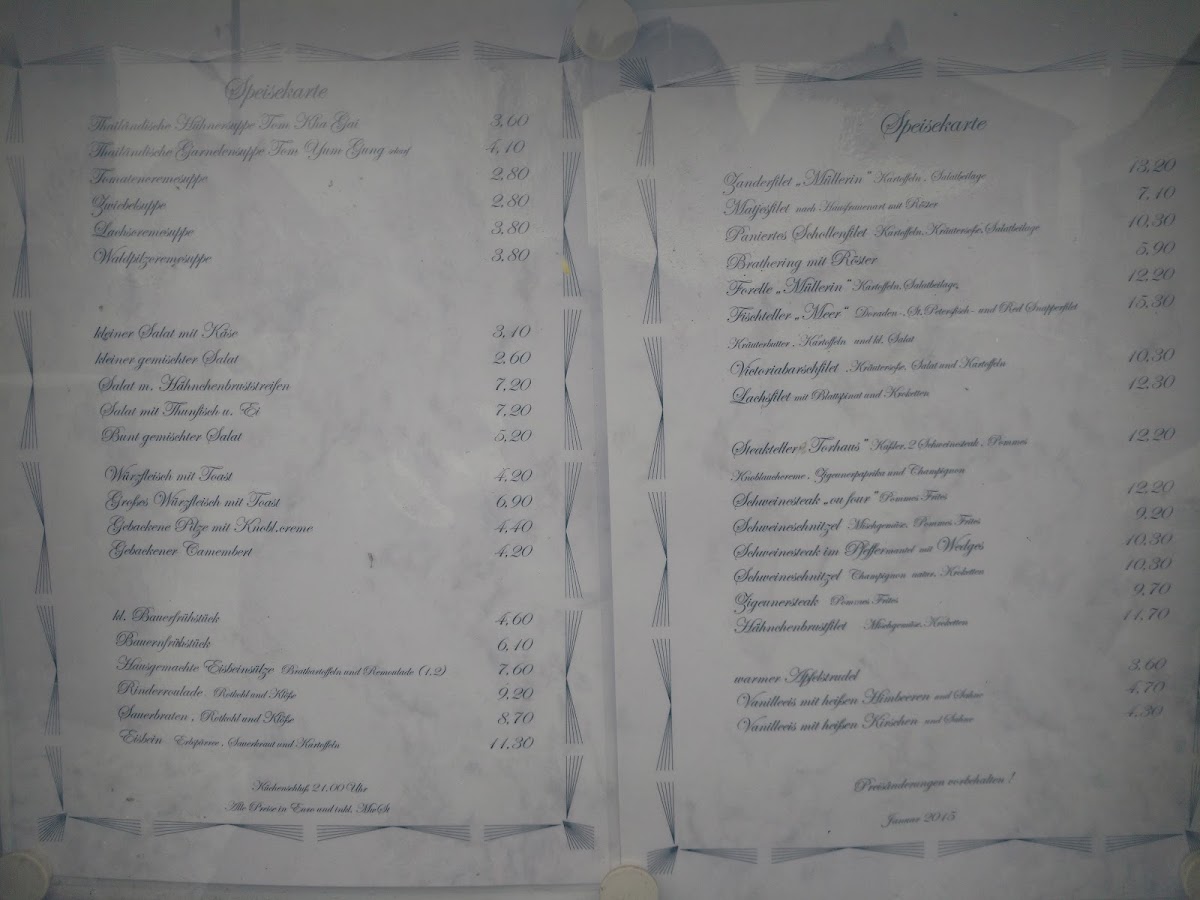 Speisekarte
Thailändische Hühnersuppe Tom Kha Gai 3,60
Thailändische Garnelensuppe Tom Yum Gung scharf 4,10
Tomatencremesuppe 2,80
Zwiebelsuppe 2,80
Lachscremesuppe 3,80
Waldpilzcremesuppe 3,80
kleiner Salat mit Käse 3,10
kleiner gemischter Salat 2,60
Salat m. Hähnchenbruststreifen 7,20
Salat mit Thunfisch u. Ei 7,20
Bunt gemischter Salat 5,20
Würzfleisch mit Toast 4,20
Großes Würzfleisch mit Toast 6,90
Gebackene Pilze mit Knobl.creme 4,40
Gebackener Camembert 4,20
kl. Bauerfrühstück 4,60
Bauernfrühstück 6,10
Hausgemachte Eisbeinsülze Bratkartoffeln und Remoulade (1,2) 7,60
Rinderroulade, Rotkohl und Klöße 9,20
Sauerbraten, Rotkohl und Klöße 8,70
Eisbein Erbspüree, Sauerkraut und Kartoffeln 11,30
Küchenschluß 21.00 Uhr
Alle Preise in Euro und inkl. MwSt
Speisekarte
Zanderfilet „Müllerin" Kartoffeln, Salatbeilage 13,20
Matjesfilet nach Hausfrauenart mit Röster 7,10
Paniertes Schollenfilet Kartoffeln, Kräutersoße, Salatbeilage 10,30
Brathering mit Röster 5,90
Forelle „Müllerin" Kartoffeln, Salatbeilage, 12,20
Fischteller „Meer" Doraden-, St. Petersfisch- und Red Snapperfilet 15,30
Kräuterbutter, Kartoffeln und kl. Salat
Victoriabarschfilet, Kräutersoße, Salat und Kartoffeln 10,30
Lachsfilet mit Blattspinat und Kroketten 12,30
Steakteller „Torhaus" Kaßler, 2 Schweinesteak, Pommes 12,20
Knoblauchcreme, Zigeunerpaprika und Champignon
Schweinesteak „ou four" Pommes Frites 12,20
Schweineschnitzel Mischgemüse, Pommes Frites 9,20
Schweinesteak im Pfeffermantel mit Wedges 10,30
Schweineschnitzel Champignon natur, Kroketten 10,30
Zigeunersteak Pommes Frites 9,70
Hähnchenbrustfilet Mischgemüse, Kroketten 11,70
warmer Apfelstrudel 3,60
Vanilleeis mit heißen Himbeeren und Sahne 4,70
Vanilleeis mit heißen Kirschen und Sahne 4,30
Preisänderungen vorbehalten !
Januar 2015